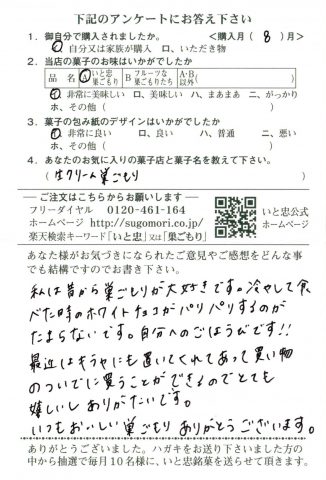 下記のアンケートにお答え下さい
1. 御自分で購入されましたか。 <購入月(8)月>
イ 自分又は家族が購入 ロ、いただき物
2. 当店の菓子のお味はいかがでしたか
品名 A いと忠巣ごもり B フルーツな巣ごもりたち A・B以外( )
イ 非常に美味しい ロ、美味しい ハ、まあまあ ニ、がっかり
ホ、その他( )
3. 菓子の包み紙のデザインはいかがでしたか
イ 非常に良い ロ、良い ハ、普通 ニ、悪い
ホ、その他( )
4. あなたのお気に入りの菓子店と菓子名を教えて下さい。
(生クリーム巣ごもり)
ご注文はこちらからお願いします
フリーダイヤル 0120-461-164
ホームページ http://sugomori.co.jp/
楽天検索キーワード「いと忠」又は「巣ごもり」
いと忠公式
ホームページ
あなた様がお気づきになられたご意見やご感想をどんな事
でも結構ですのでお書き下さい。
私は昔から巣ごもりが大好きです。冷やして食
べた時のホワイトチョコがパリパリするのが
たまらないです。自分へのごほうびです!!
最近はキラヤにも置いてくれてあって買い物
のついでに買うことができるのでとても
嬉しいしありがたいです。
いつもおいしい巣ごもりありがとうございます。
ありがとうございました。ハガキをお送り下さいました方の
中から抽選で毎月10名様に、いと忠銘菓を送らせて頂きます。